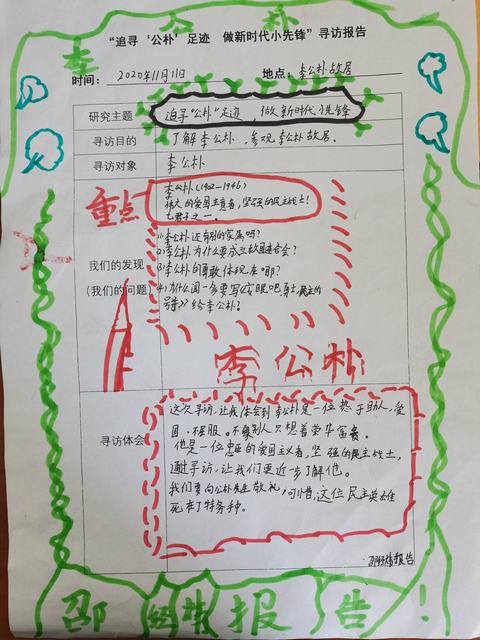 李公朴
“追寻‘公朴’足迹 做新时代小先锋”寻访报告
时间： 2020年11月11日 地点：李公朴故居
研究主题 追寻“公朴”足迹，做新时代小先锋
寻访目的 了解李公朴，参观李公朴故居。
寻访对象 李公朴
重点
李公朴(1902-1946)
伟大的爱国主意者，坚强的民主战士！
七君子之一。
我们的发现
（我们的问题）
1)李公朴还有别的家属吗？
2)李公朴为什么要成立救国会？
3)李公朴的勇敢体现在哪？
4)为什么闻一多要写《安眠吧勇士，民主的
号》给李公朴？
李公朴
寻访体会
这次寻访，让我体会到李公朴是一位热于助人，爱
国，强服。不像别人只想着荣华富贵。
他是一位忠臣的爱国主义者，坚强的民主战士，
通过寻访，让我们更近一步了解他。
我们要向公朴先生敬礼，可惜，这位民主英雄
死在了特务种。
邵 报告
邵 报告！